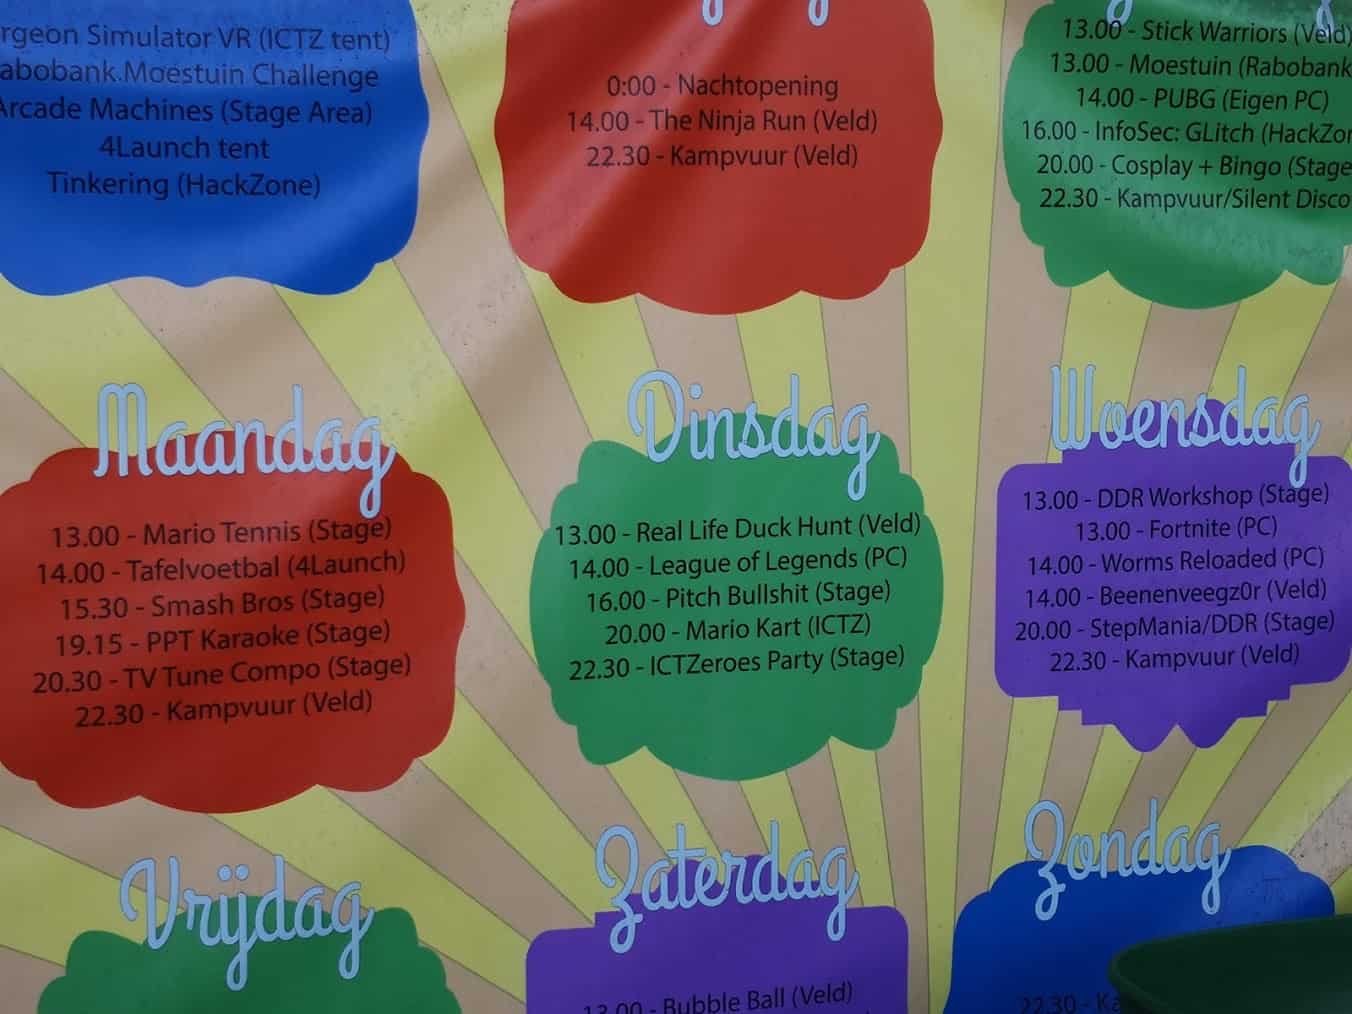 Simulator VR (ICTZ tent)
Moestuin Challenge
Arcade Machines (Stage Area)
4Launch tent
Tinkering (HackZone)
0:00 - Nachtopening
14.00 - The Ninja Run (Veld)
22.30 - Kampvuur (Veld)
13.00 - Stick Warriors (Veld)
13.00 - Moestuin (Rabobank
14.00 - PUBG (Eigen PC)
16.00 - InfoSec: GLitch (HackZon
20.00 - Cosplay + Bingo (Stage
22.30 - Kampvuur/Silent Disco
Maandag
13.00 - Mario Tennis (Stage)
14.00 - Tafelvoetbal (4Launch)
15.30 - Smash Bros (Stage)
19.15 - PPT Karaoke (Stage)
20.30 - TV Tune Compo (Stage)
22.30 - Kampvuur (Veld)
Dinsdag
13.00 - Real Life Duck Hunt (Veld)
14.00 - League of Legends (PC)
16.00 - Pitch Bullshit (Stage)
20.00 - Mario Kart (ICTZ)
22.30 - ICTZeroes Party (Stage)
Woensdag
13.00 - DDR Workshop (Stage)
13.00 - Fortnite (PC)
14.00 - Worms Reloaded (PC)
14.00 - Beenenveegz0r (Veld)
20.00 - StepMania/DDR (Stage)
22.30 - Kampvuur (Veld)
Vrijdag
Zaterdag
13.00 - Bubble Ball (Veld)
Zondag
22.30 - Ka